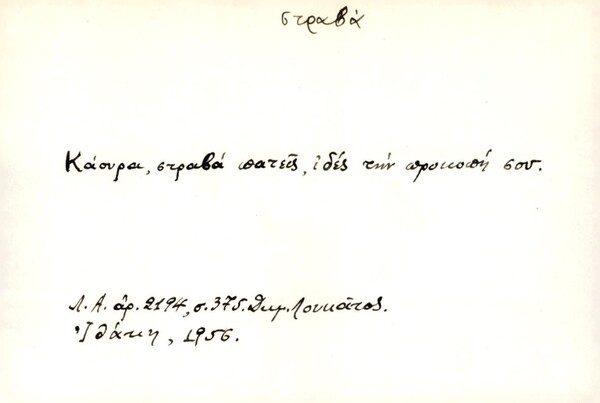 στραβά
Κάουρα, στραβά πατεῖς, ἰδές τήν προκοπή σου.
Λ.Α. ἀρ. 2194, σ. 375. Δημ. Λουκᾶτος.
Ἰθάκη, 1956.